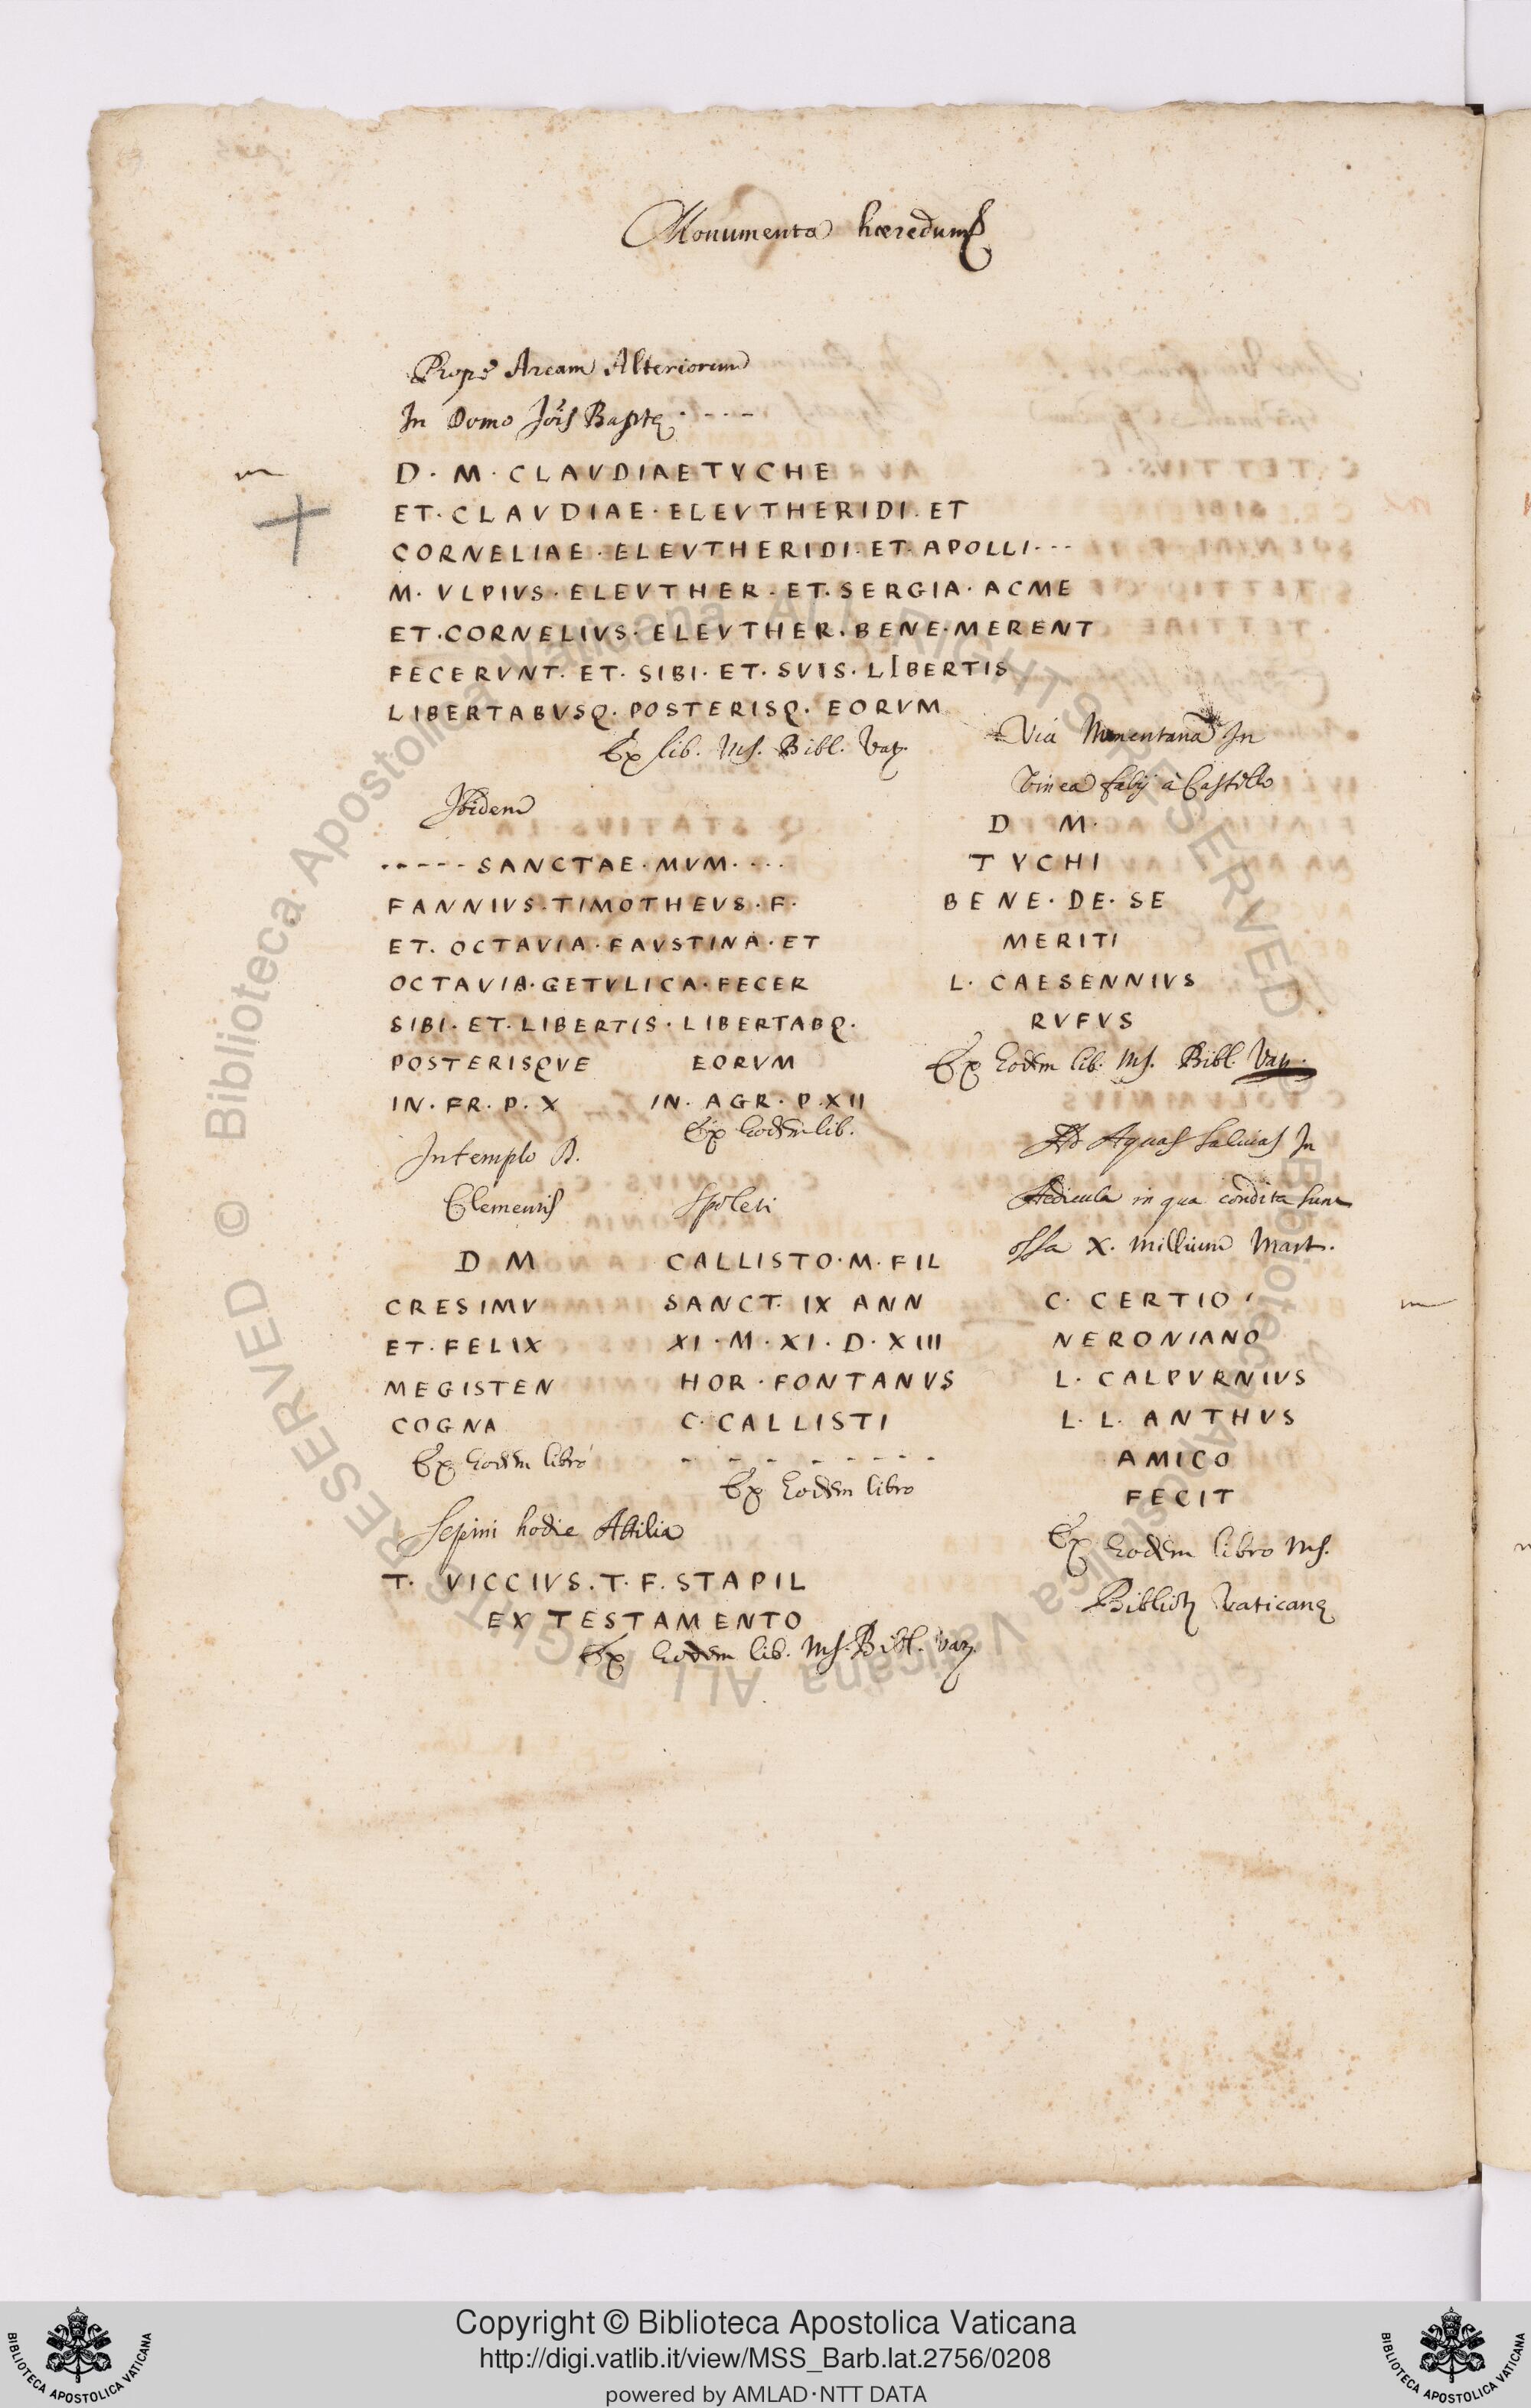 Monumenta hæredum
Prope Arcam Alteriorum
In Domo Jois Baptę . - - -
D . M . CLAVDIAETVCHE
ET . CLAVDIAE . ELEVTHERIDI . ET
CORNELIAE . ELEVTHERIDI . ET . APOLLI . - -
M . VLPIVS . ELEVTHER . ET . SERGIA . ACME
ET . CORNELIVS . ELEVTHER . BENE . MERENT
FECERVNT . ET . SIBI . ET . SVIS . LIBERTIS
LIBERTABVSQ . POSTERISQ . EORVM
Ex lib. Ms. Bibl. Vat.
Ibidem
- - - - - SANCTAE . MVM . - - -
FANNIVS . TIMOTHEVS . F .
ET . OCTAVIA . FAVSTINA . ET
OCTAVIA . GETVLICA . FECER
SIBI . ET . LIBERTIS . LIBERTABQ .
POSTERISQVE EORVM
IN . FR . P . X IN . AGR . P . XII
Ex Eodem lib.
In templo D.
Clementis
D M
CRESIMV
ET . FELIX
MEGISTEN
COGNA
Ex Eodem libro
Spoleti
CALLISTO . M . FIL
SANCT . IX ANN
XI . M . XI . D . XIII
HOR . FONTANVS
C . CALLISTI
- - - - - - -
Ex Eodem libro
Sepini hodie Attilia
T . VICCIVS . T . F . STAPIL
EX TESTAMENTO
Ex Eodem lib. Ms. Bibl. Vat.
Via Numentana In
Vinea Fabij à Castello
D M .
TYCHI
BENE . DE . SE
MERITI
L . CAESENNIVS
RVFVS
Ex Eodem lib. Ms. Bibl. Vat.
Ad Aquas Saluias In
Aedicula in qua condita sunt
ossa X . millium Mart.
C . CERTIO
NERONIANO
L . CALPVRNIVS
L . L . ANTHVS
AMICO
FECIT
Ex Eodem libro Ms.
Biblioth Vaticanę
Copyright © Biblioteca Apostolica Vaticana
http://digi.vatlib.it/view/MSS_Barb.lat.2756/0208
powered by AMLAD·NTT DATA
BIBLIOTECA APOSTOLICA VATICANA
BIBLIOTECA APOSTOLICA VATICANA